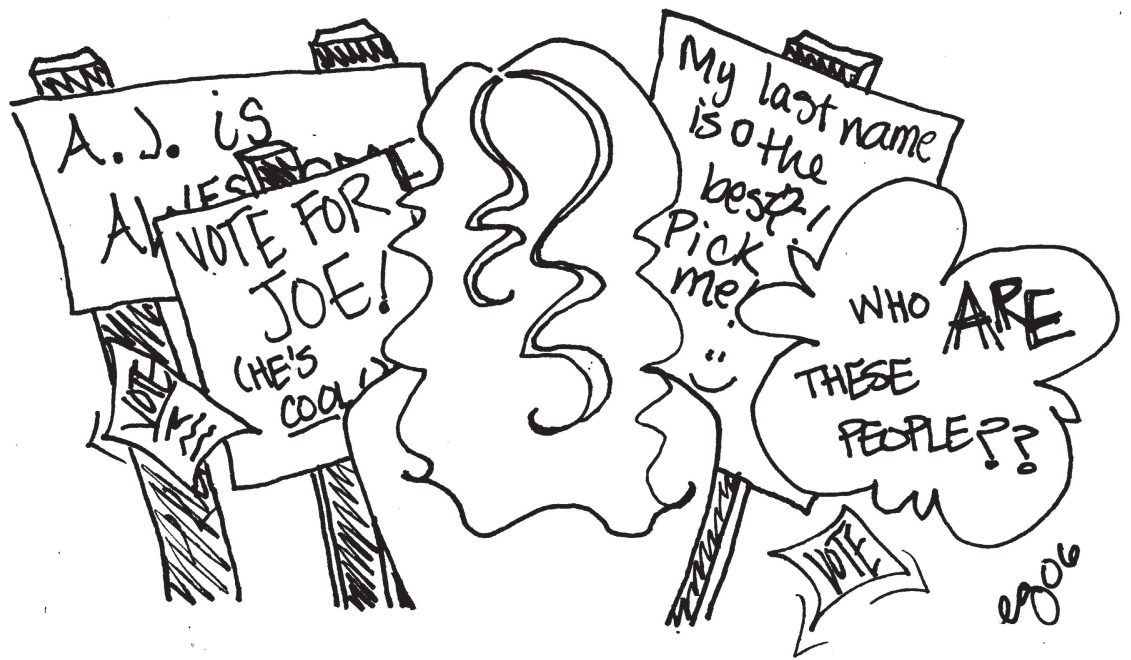 A.J. is
AWESOME
VOTE FOR
JOE!
(HE'S
COOL)
VOTE
My last name
is the
best!
Pick
me!
WHO ARE
THESE
PEOPLE??
VOTE
eg06